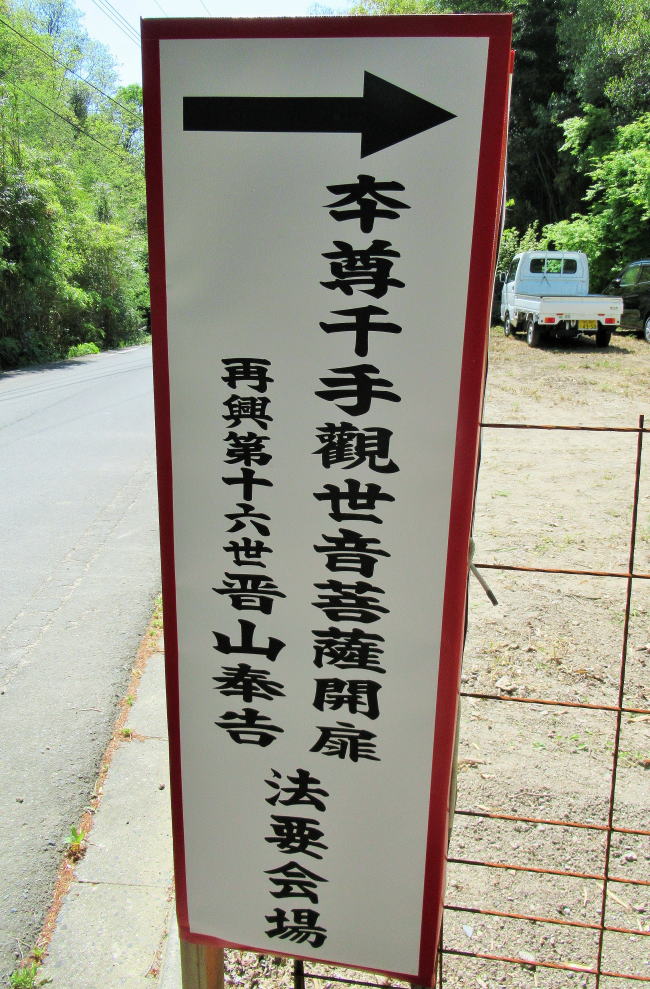 本尊千手觀世音菩薩開扉
再興第十六世晋山奉告
法要会場